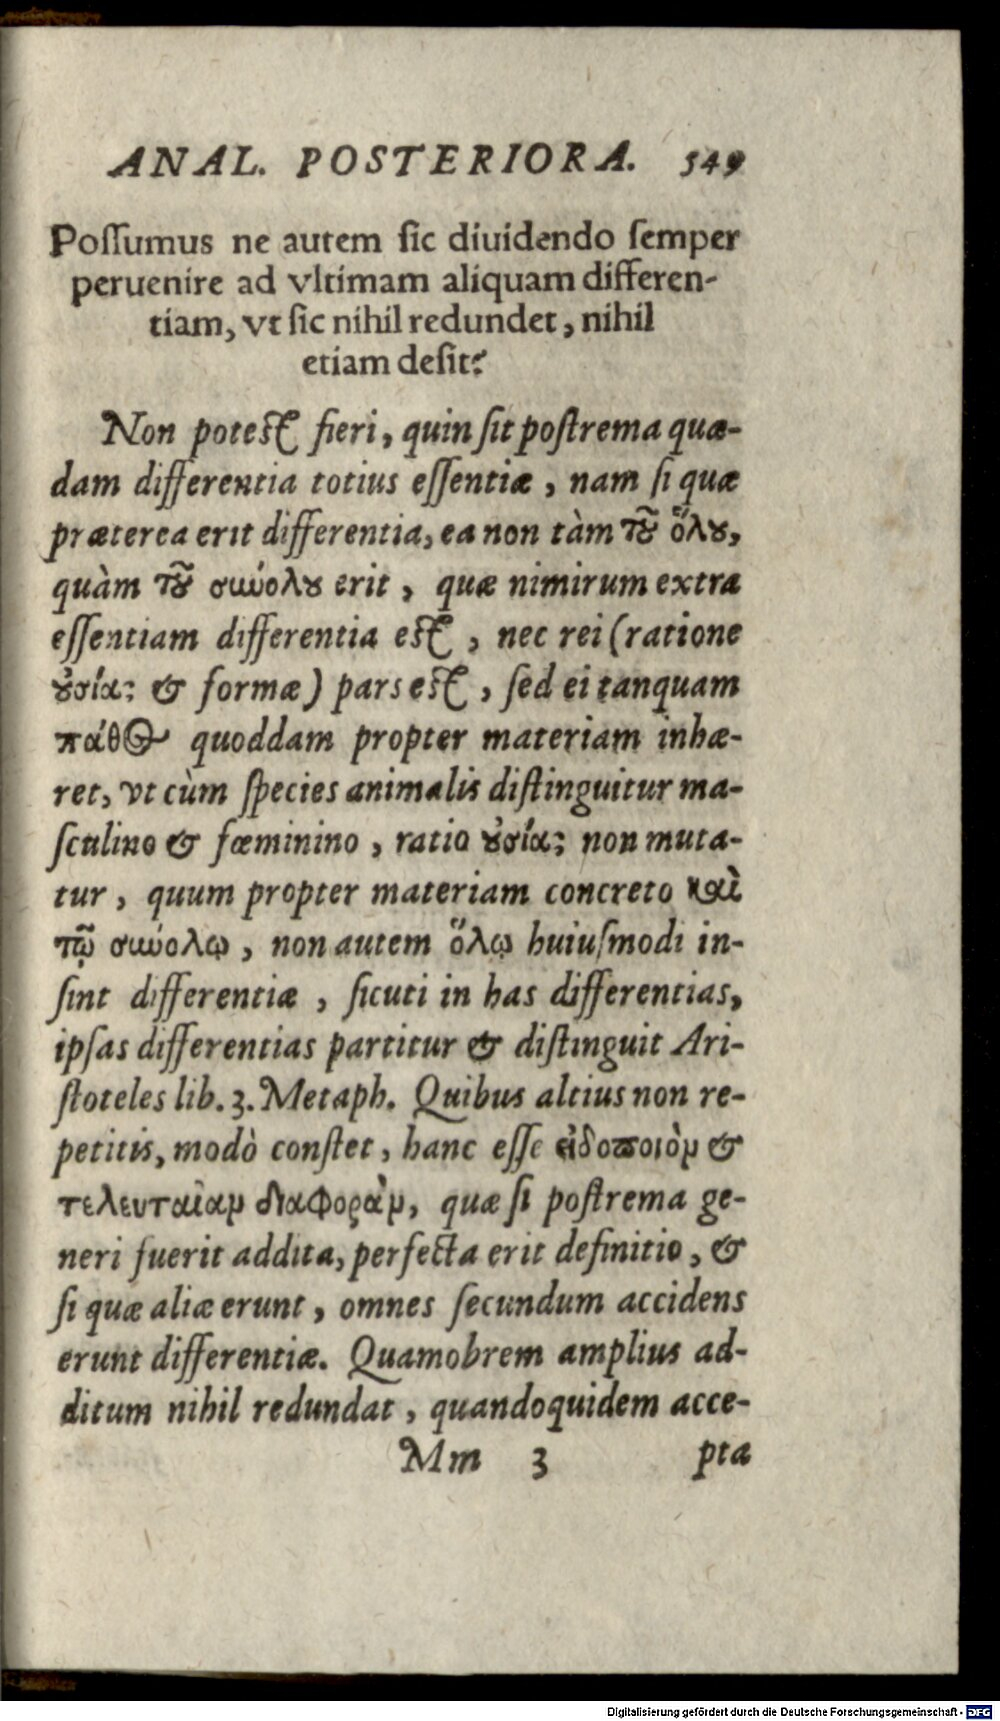 ANAL. POSTERIORA. 549
Possumus ne autem sic diuidendo semper
peruenire ad vltimam aliquam differen-
tiam, vt sic nihil redundet, nihil
etiam desit?
Non potest fieri, quin sit postrema quæ-
dam differentia totius essentiæ, nam si quæ
præterea erit differentia, ea non tàm τοῦ ὅλου,
quàm τοῦ σιωόλου erit, quæ nimirum extra
essentiam differentia est, nec rei (ratione
οὐσίας & formæ) pars est, sed ei tanquam
πάθος quoddam propter materiam inhæ-
ret, vt cùm species animalis distinguitur ma-
sculino & fœminino, ratio οὐσίας non muta-
tur, quum propter materiam concreto καὶ
τῷ σιωόλῳ, non autem ὅλῳ huiusmodi in-
sint differentiæ, sicuti in has differentias,
ipsas differentias partitur & distinguit Ari-
stoteles lib. 3. Metaph. Quibus altius non re-
petitis, modò constet, hanc esse εἰδοποιὸν &
τελευταίαν διαφορὰν, quæ si postrema ge-
neri fuerit addita, perfecta erit definitio, &
si quæ aliæ erunt, omnes secundum accidens
erunt differentiæ. Quamobrem amplius ad-
ditum nihil redundat, quandoquidem acce-
Mm 3 pta
Digitalisierung gefördert durch die Deutsche Forschungsgemeinschaft - DFG